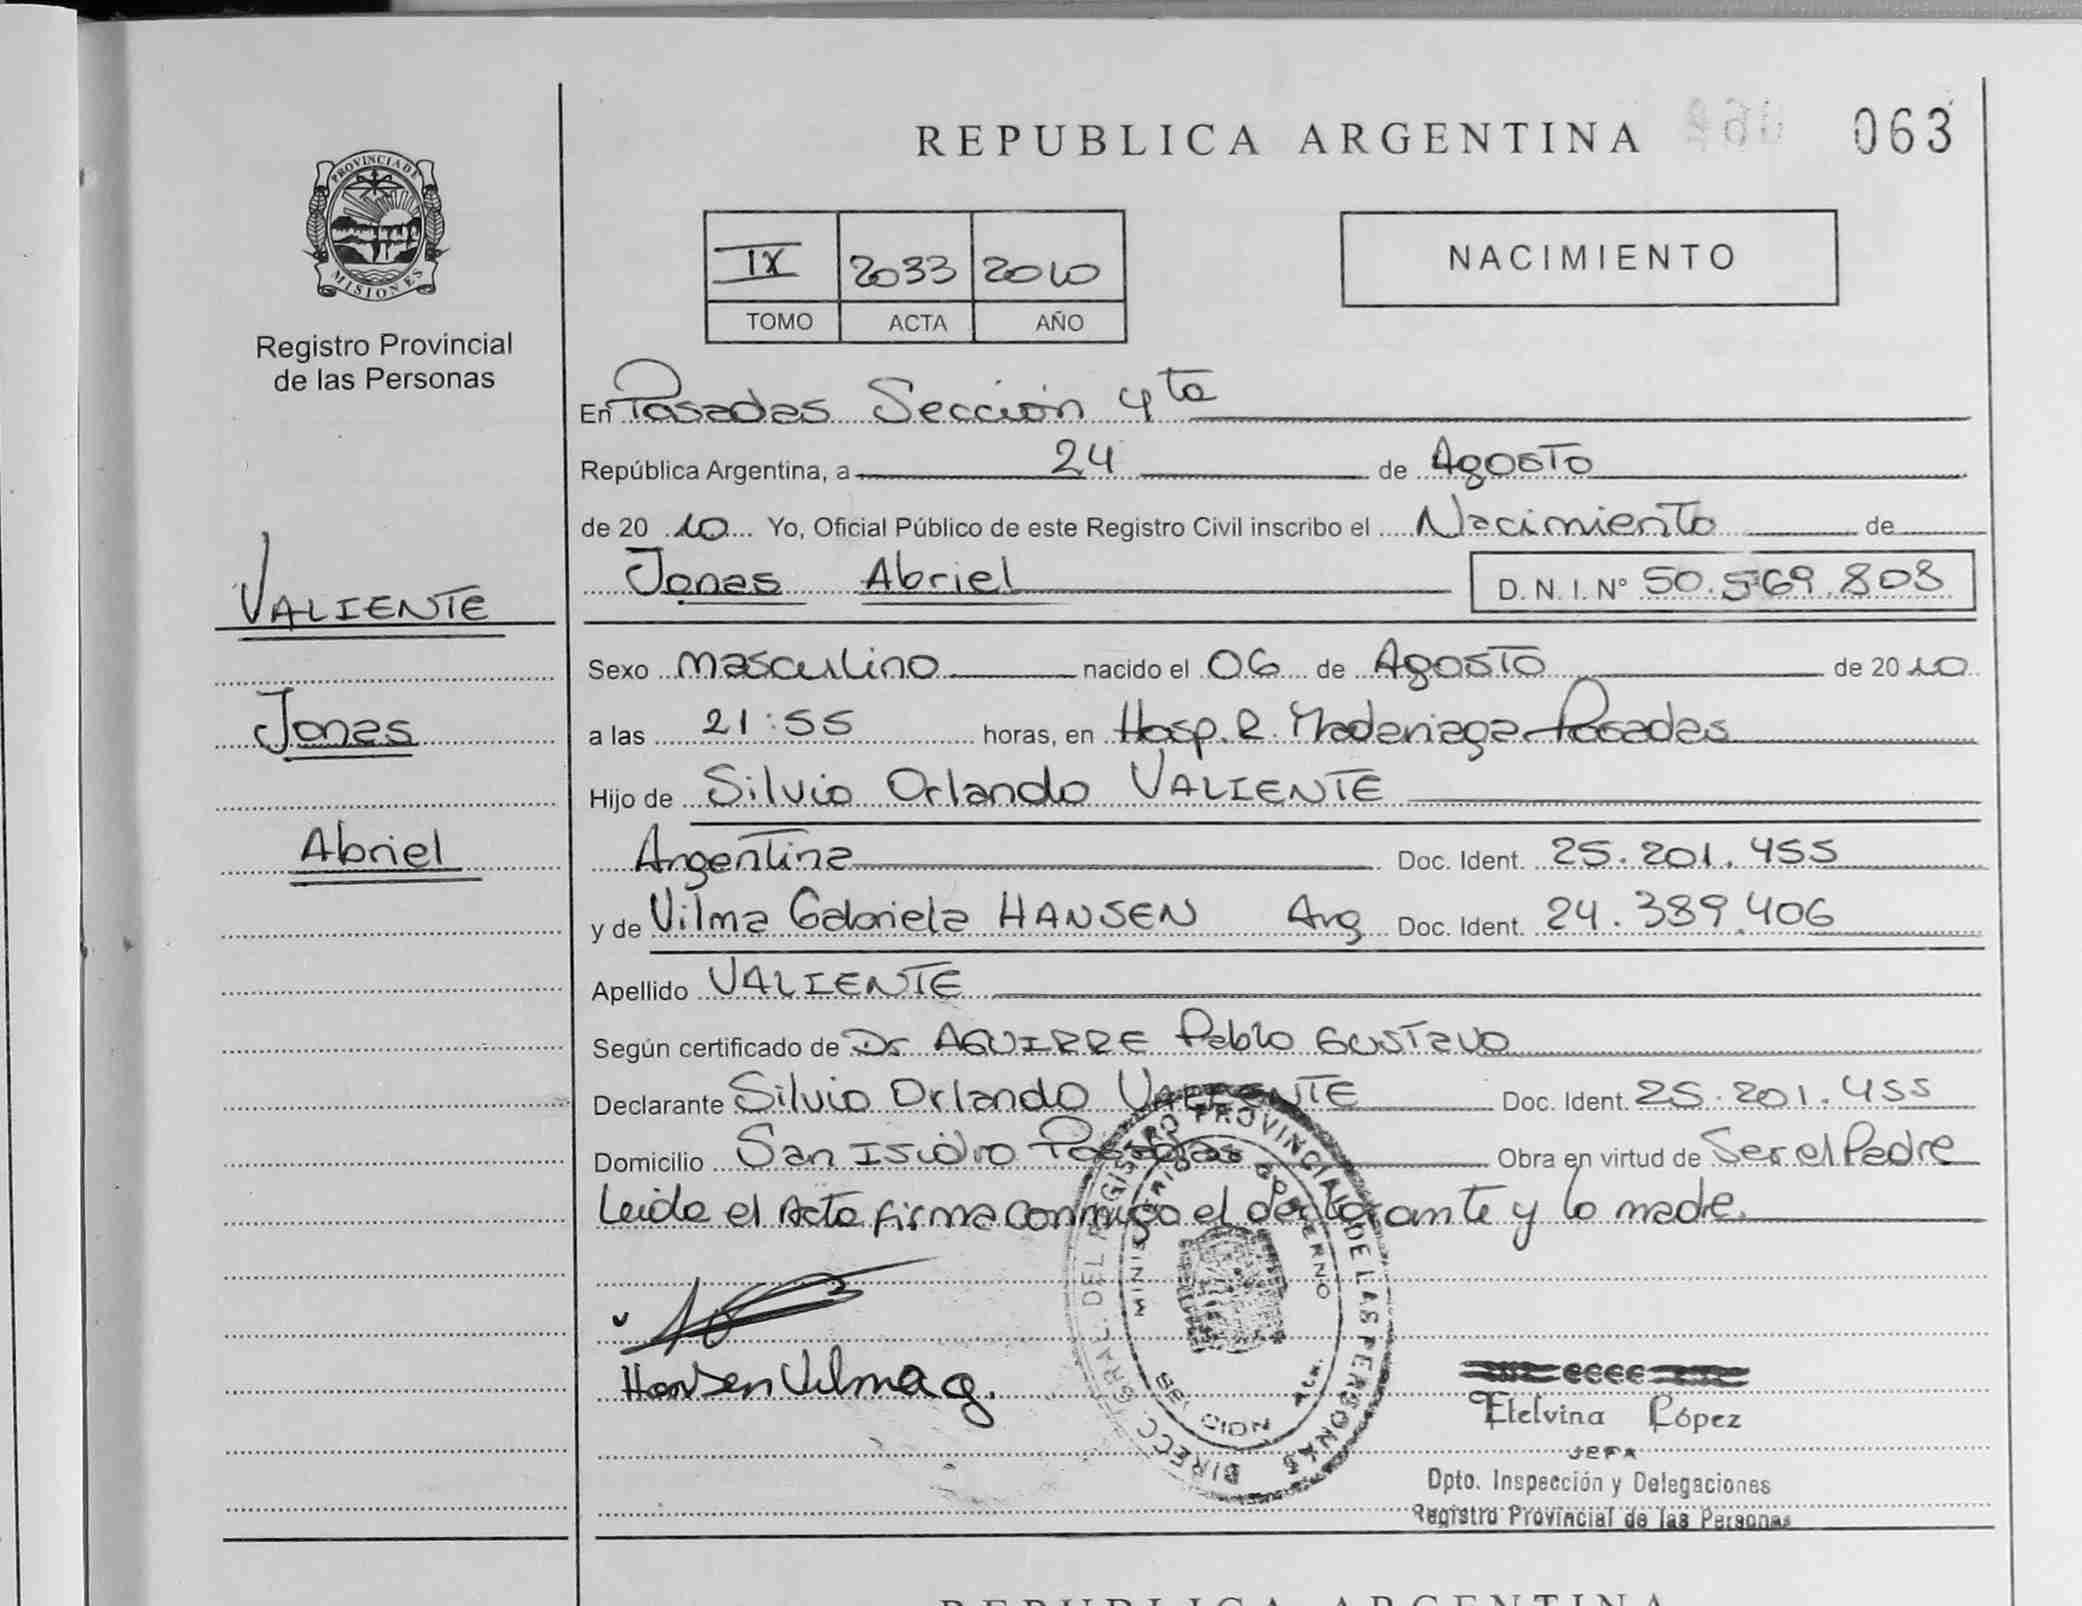 REPUBLICA ARGENTINA 063
PROVINCIA DE
MISIONES
Registro Provincial
de las Personas
IX 2033 2010
TOMO ACTA AÑO
NACIMIENTO
En Posadas Sección 4ta
República Argentina, a 24 de Agosto
de 20 10 Yo, Oficial Público de este Registro Civil inscribo el Nacimiento de
Jonas Abriel D. N. I. Nº 50.569.803
VALIENTE
Jonas
Abriel
Sexo masculino nacido el 06 de Agosto de 20 10
a las 21:55 horas, en Hosp. R. Madariaga Posadas
Hijo de Silvio Orlando VALIENTE
Argentina Doc. Ident. 25.201.455
y de Vilma Gabriela HANSEN Arg Doc. Ident. 24.389.406
Apellido VALIENTE
Según certificado de Dr AGUIRRE Pablo GUSTavo
Declarante Silvio Orlando VALIENTE Doc. Ident. 25.201.455
Domicilio San Isidro Posadas Obra en virtud de Ser el Padre
Leida el Acta firma conmigo el declarante y la madre.
Hansen Vilma g.
DIRECC. GRAL. DEL REGISTRO PROVINCIAL DE LAS PERSONAS
MINISTERIO DE GOBIERNO
Etelvina López
JEFA
Dpto. Inspección y Delegaciones
Registro Provincial de las Personas
REPUBLICA ARGENTINA